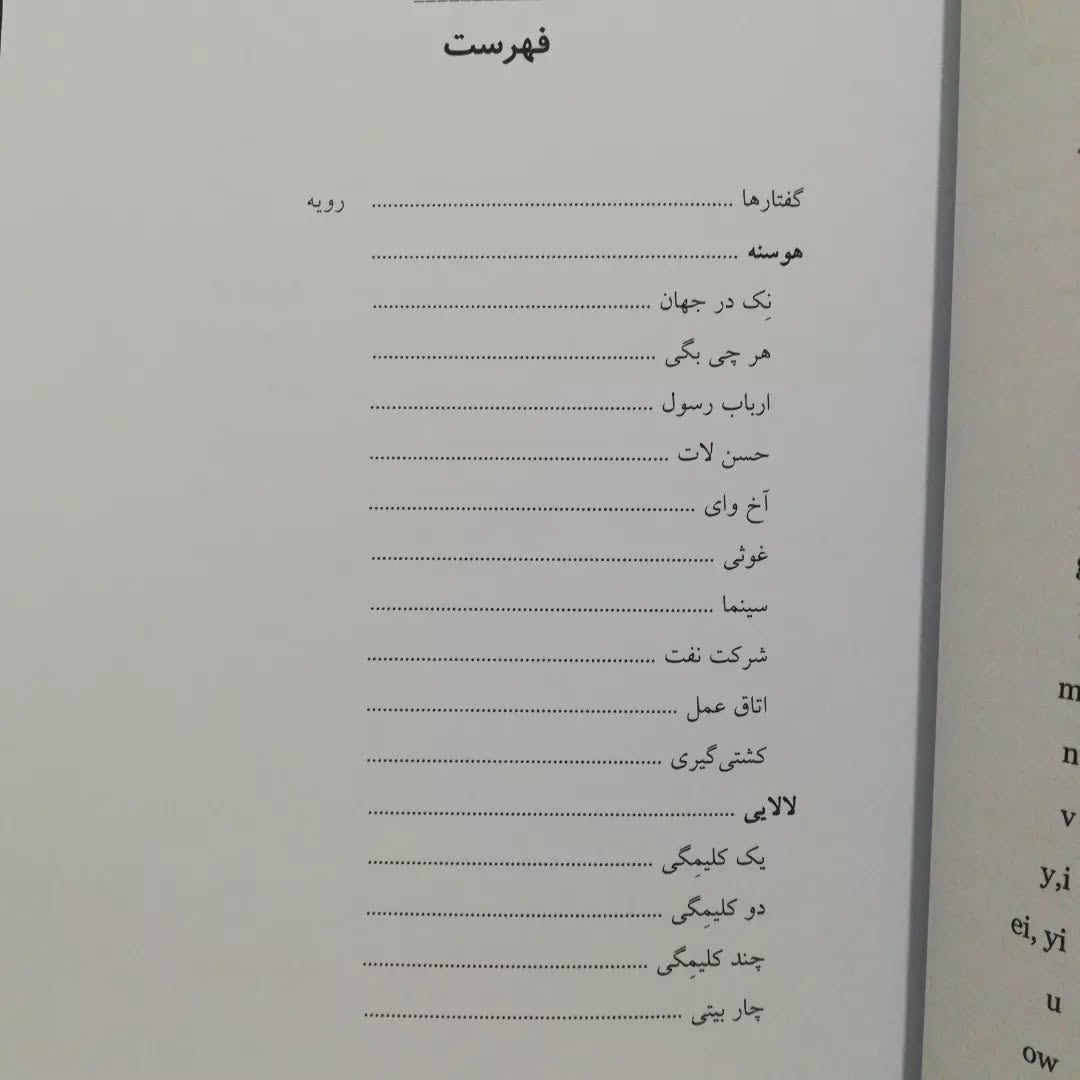 فهرست
گفتارها .......... رویه
هوسنه ..........
نِک در جهان ..........
هر چی بگی ..........
ارباب رسول ..........
حسن لات ..........
آخ وای ..........
غوثی ..........
سینما ..........
شرکت نفت ..........
اتاق عمل ..........
کشتی‌گیری ..........
لالایی ..........
یک کلیمِگی ..........
دو کلیمِگی ..........
چند کلیمِگی ..........
چار بیتی ..........
m
n
v
y,i
ei, yi
u
ow